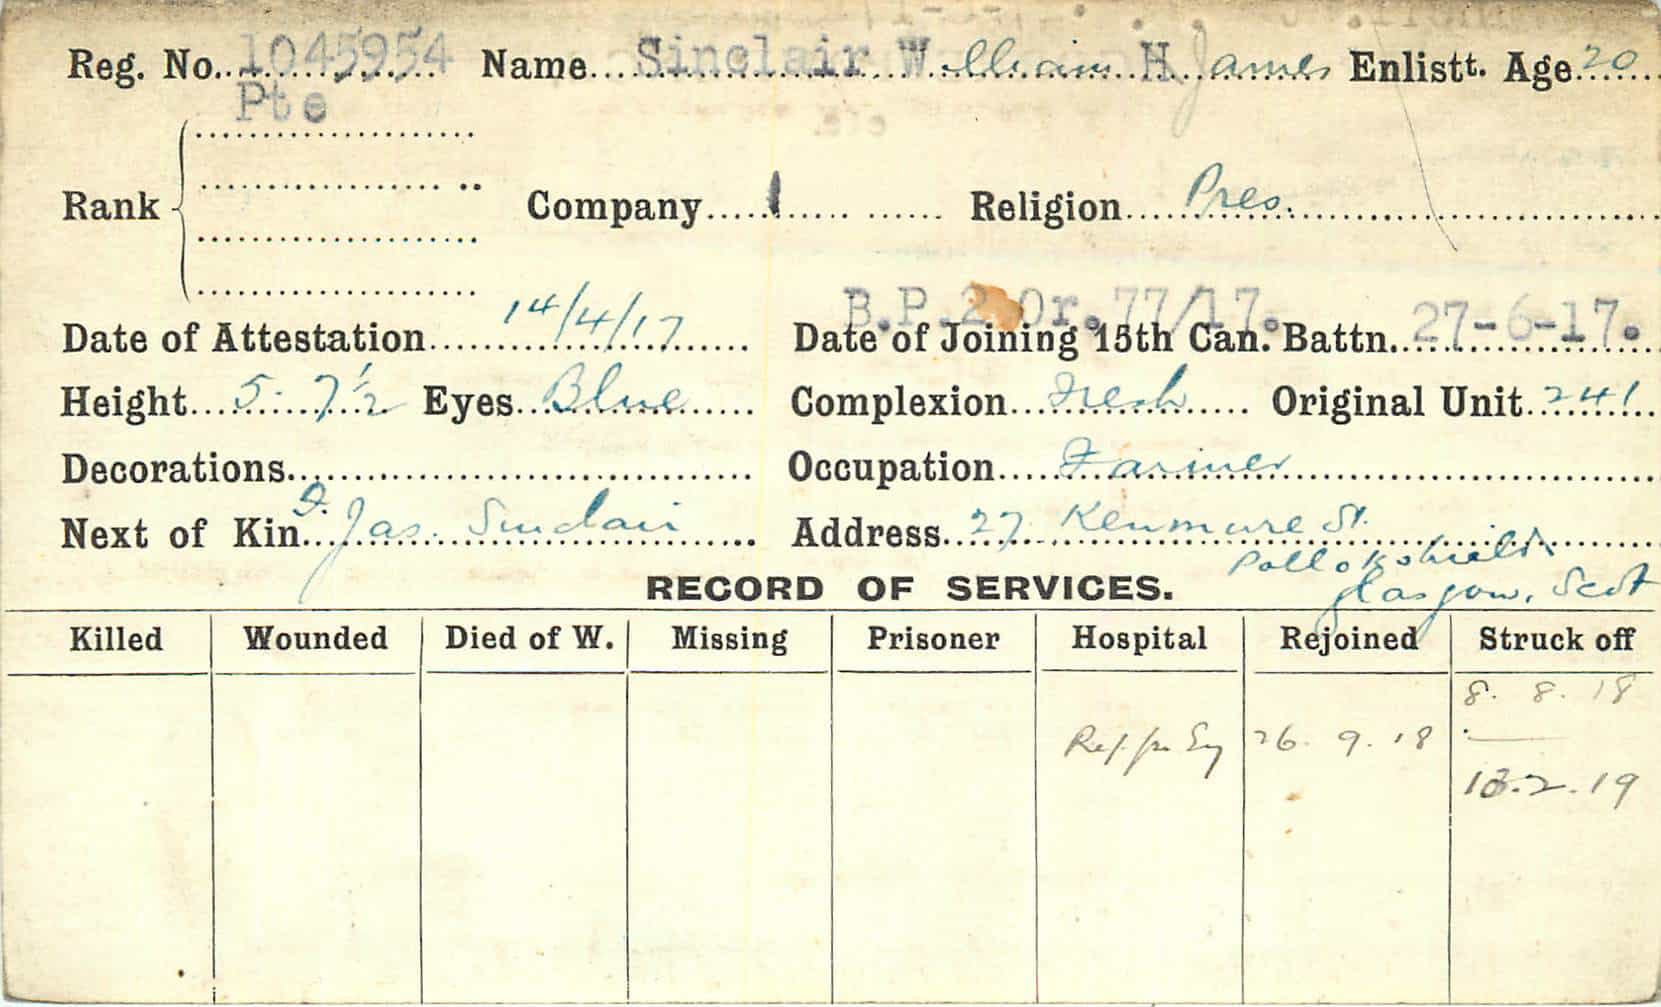 Reg. No. 1045954 Name Sinclair William H James Enlistt. Age 20
Pte
Rank Company 1 Religion Pres.
B.P.2 Or. 77/17.
Date of Attestation 14/4/17 Date of Joining 15th Can. Battn. 27-6-17.
Height 5. 7½ Eyes Blue Complexion Fresh Original Unit 241
Decorations Occupation Farmer
Next of Kin F. Jas. Sinclair Address 27 Kenmure St.
Pollokshields
Glasgow, Scot
RECORD OF SERVICES.
Killed Wounded Died of W. Missing Prisoner Hospital Rejoined Struck off
8. 8. 18
26. 9. 18
13.2.19